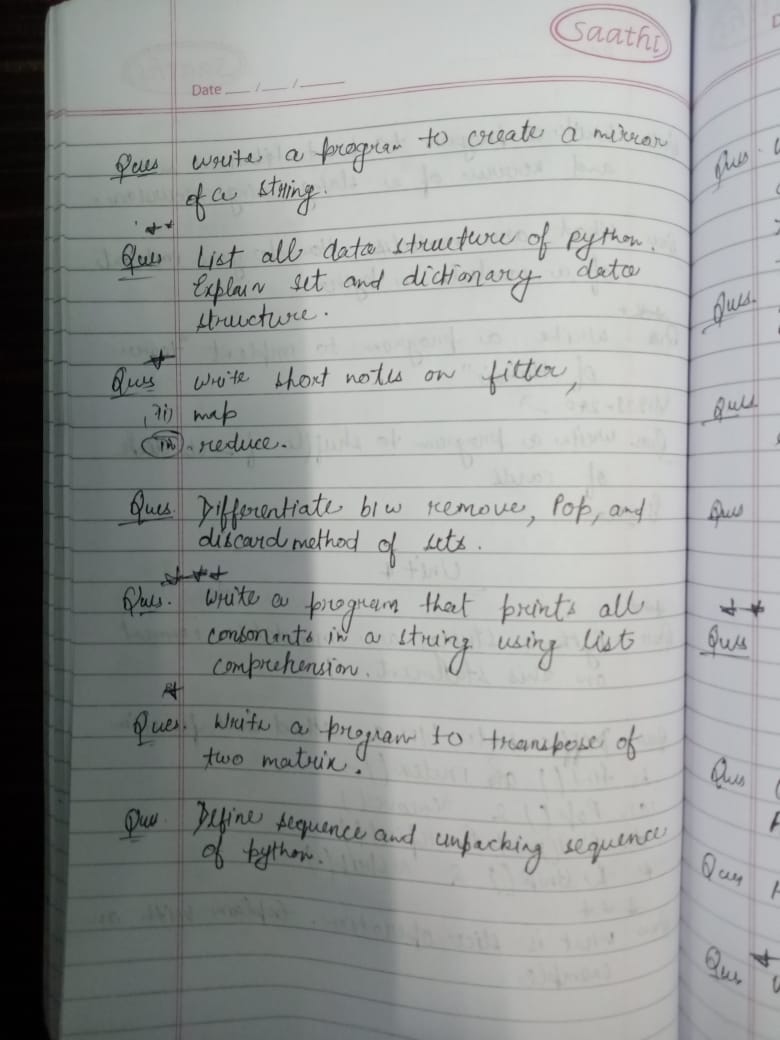 Saathi
Date __/__/__
Ques write a program to create a mirror
of a string.
Ques List all data structure of python.
Explain set and dictionary data
structure.
Ques write short notes on filter,
ii) map
iii) reduce.
Ques. Differentiate b/w remove, Pop, and
discard method of sets.
Ques. Write a program that prints all
consonants in a string using list
comprehension.
Ques. Write a program to transpose of
two matrix.
Ques Define sequence and unpacking sequence
of python.
Ques.
Ques.
Ques
Ques
Ques
Ques
Ques
Ques